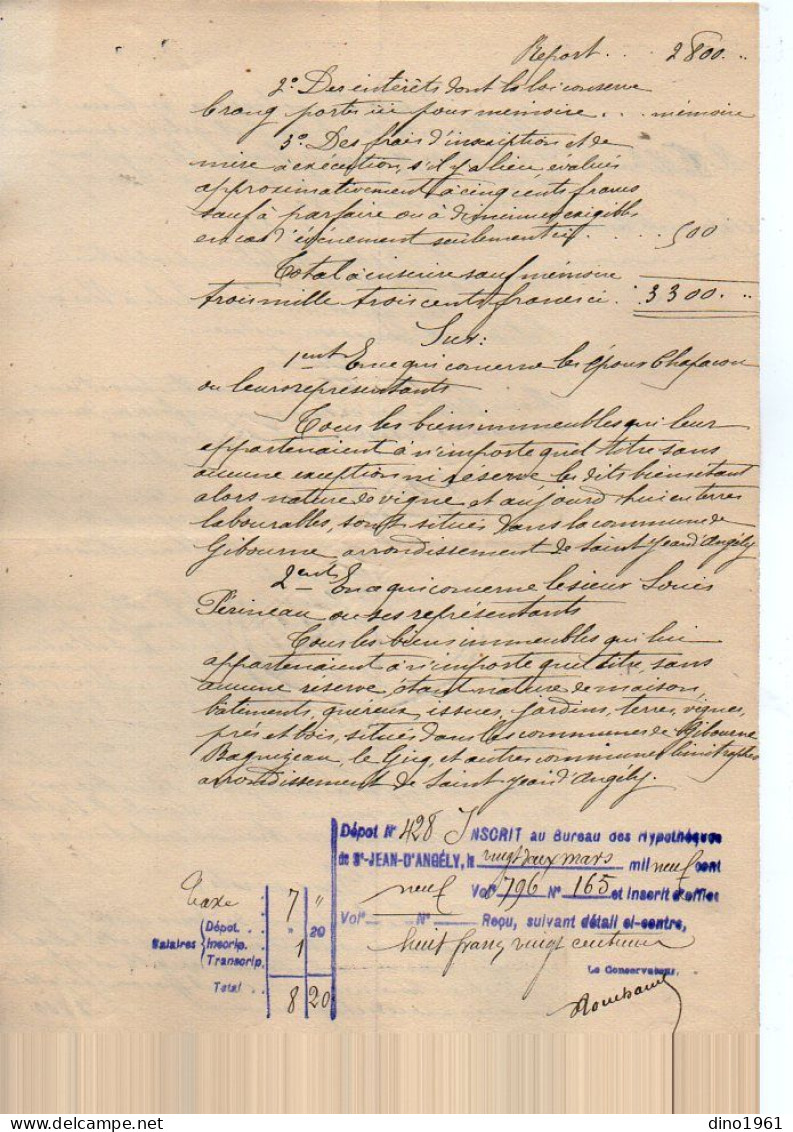 Report . . . 2800. "
2° Des intérêts dont la loi conserve
le rang portés ici pour mémoire . . . mémoire
3° Des frais d'inscription et de
mise à exécution, s'il y a lieu, évalués
approximativement à cinq cents francs
sauf à parfaire ou à diminuer exigibles
en cas d'événement seulement ci . . . 500
Total à inscrire sauf mémoire
trois mille trois cents francs ci . 3300. "
Sur:
1ent En ce qui concerne les époux
ou leurs représentants
Tous les biens immeubles qui leur
appartenaient à n'importe quel titre sans
aucune exception ni réserve les dits biens étant
alors nature de vigne et aujourd'hui en terres
labourables, sont situés dans la commune de
Gibourne arrondissement de Saint Jean d'Angély
2ent En ce qui concerne le sieur Louis
Périneau ou ses représentants
Tous les biens immeubles qui lui
appartenaient à n'importe quel titre, sans
aucune réserve, étant nature de maison,
bâtiments, quéreux, issues, jardins, terres, vignes,
prés et bois, situés dans les communes de Gibourne
Bagnizeau, le Gicq, et autres communes limitrophes
arrondissement de Saint Jean d'Angély.
Dépot N° 428 INSCRIT au Bureau des Hypothèques
de St-JEAN-D'ANGÉLY, le vingt deux mars mil neuf cent
neuf Vol° 796 N° 165 et inscrit d'office
Vol° N° Reçu, suivant détail ci-contre,
huit francs vingt centimes
Le Conservateur,
Taxe . 7 "
Salaires Dépot. . " 20
Inscrip. 1
Transcrip.
Total . . 8 20
dino1961